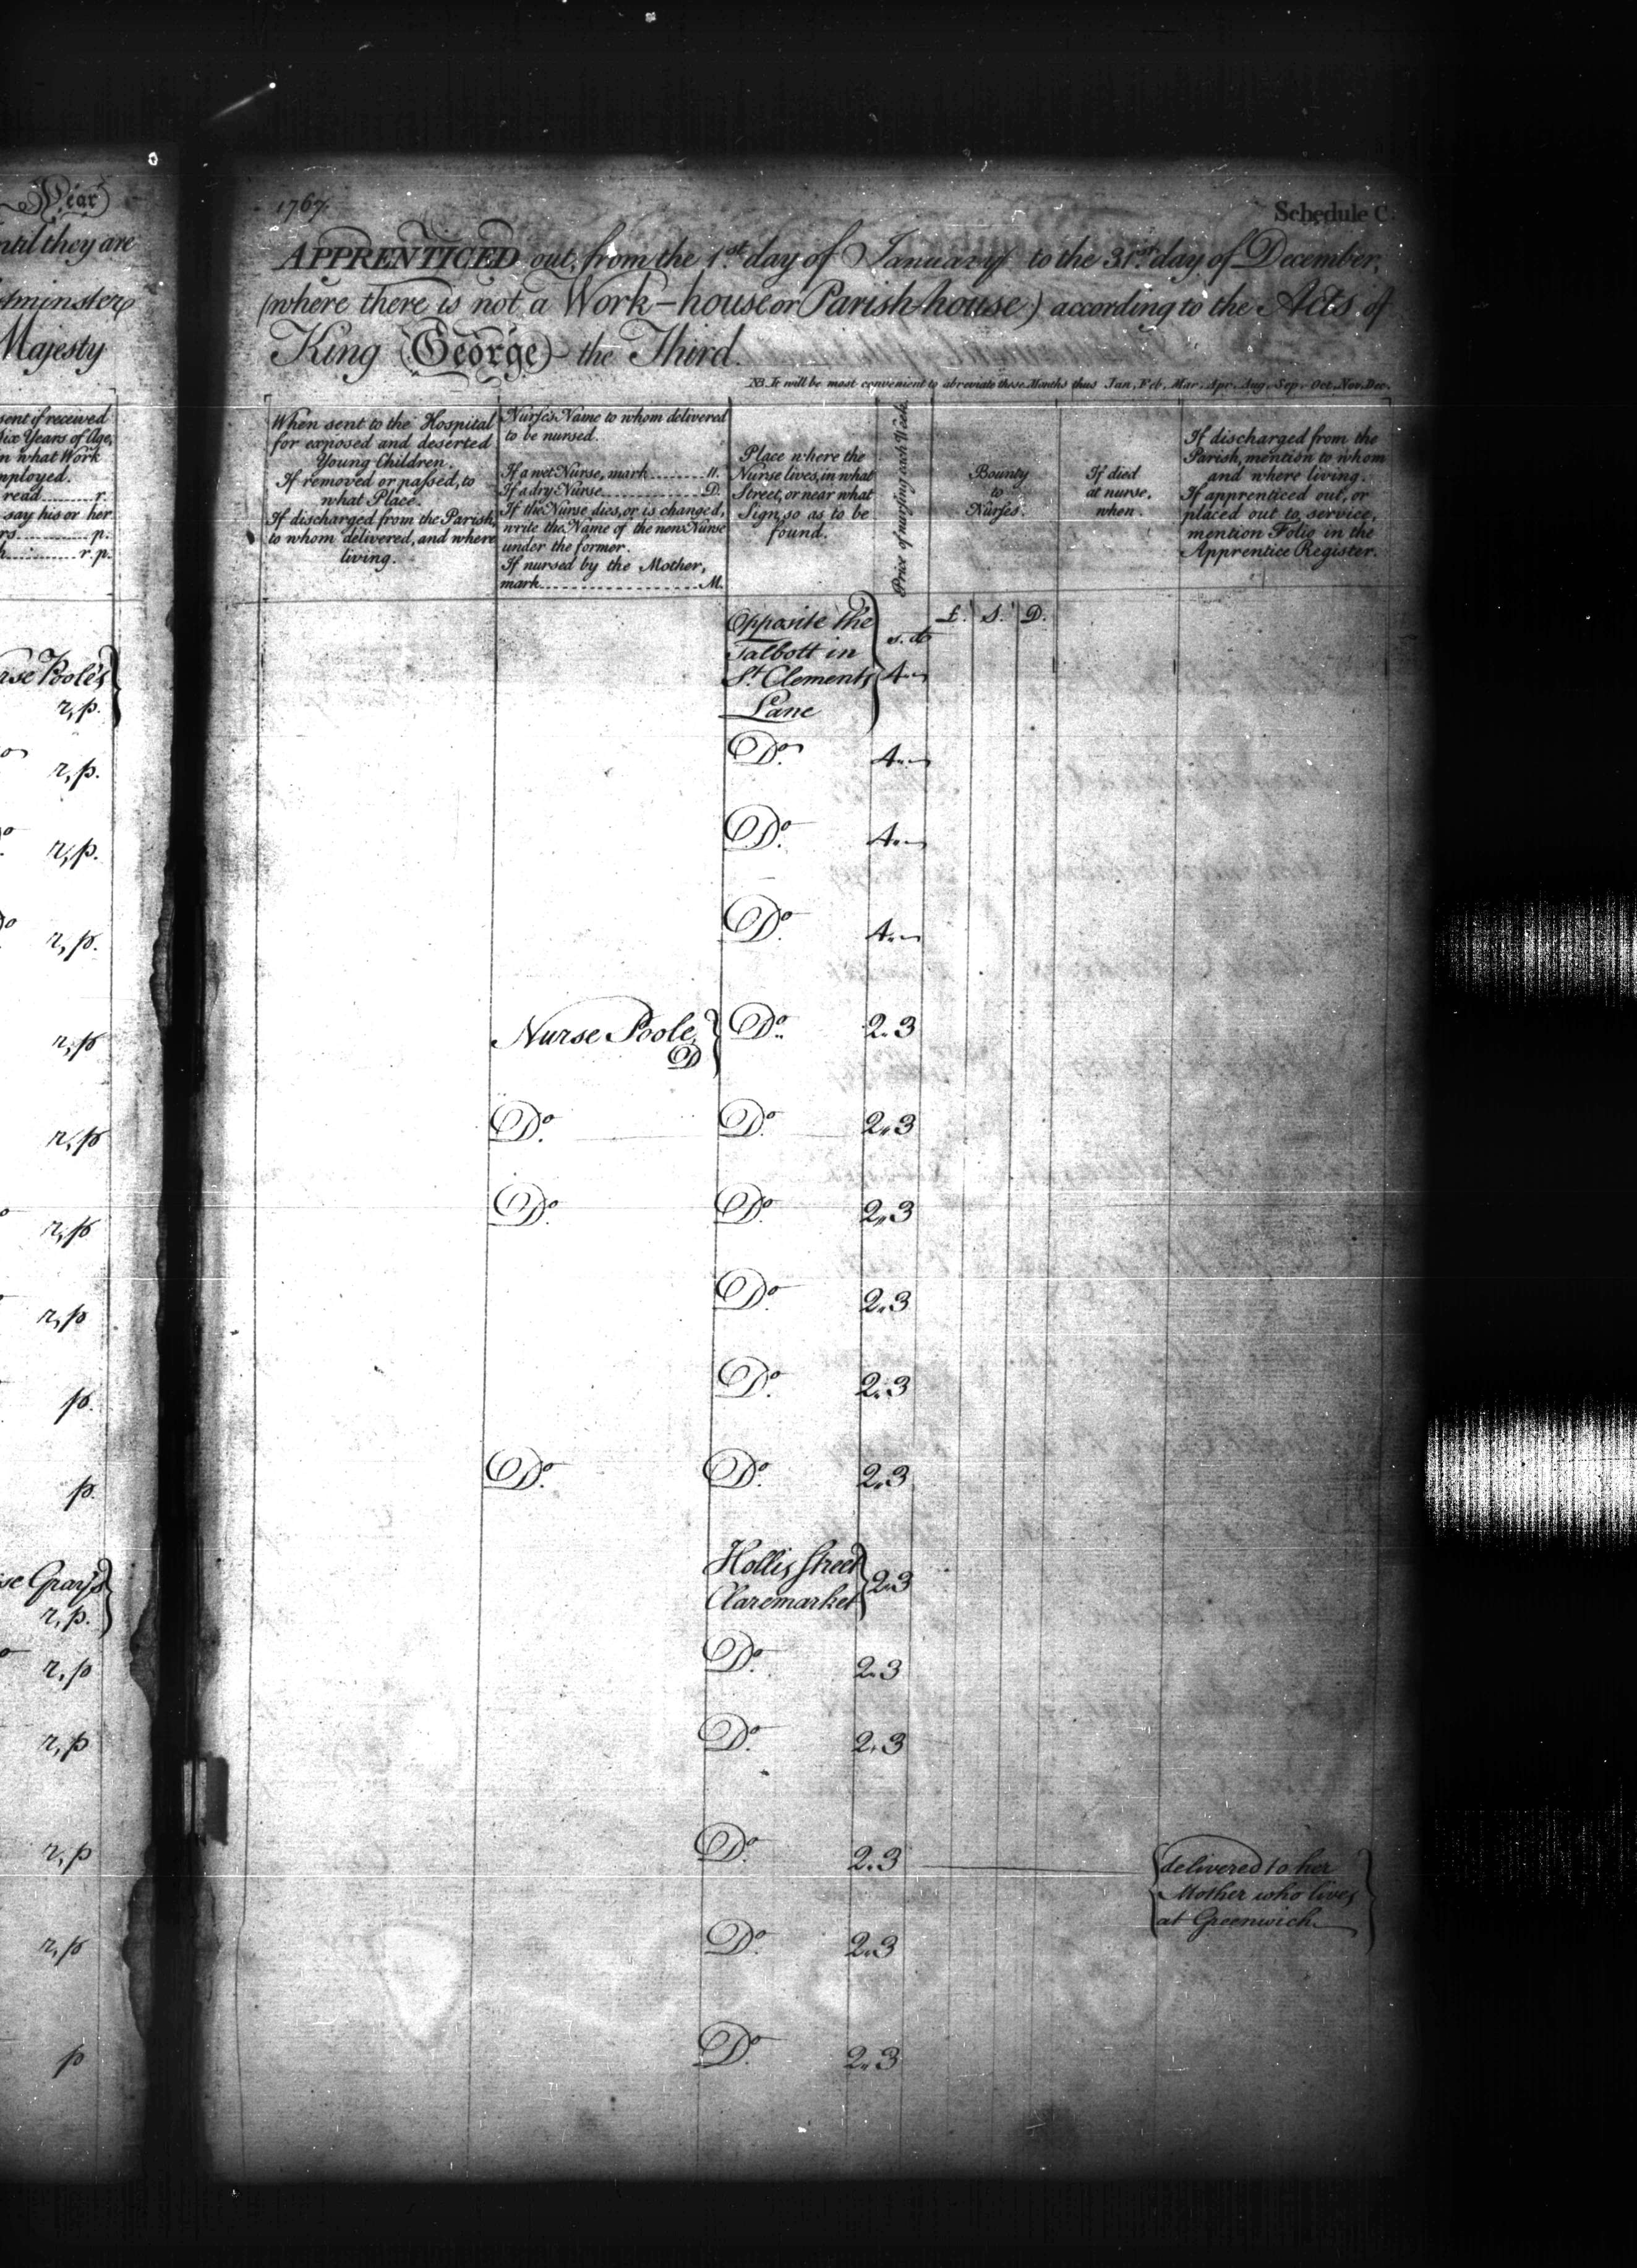 Year
ntil they are
tminster
Majesty
sent if received
Six Years of Age,
n what Work
mployed.
read ........ r.
say his or her
rs ........ p.
h ........ r.p.
rse Poole's
r, p.
r, p.
r, p.
r, p.
r, p
r, p
r, p
r, p
p.
p.
se Gray's
r, p.
r, p
r, p
r, p
r, p
p
1767
Schedule C.
APPRENTICED out, from the 1st. day of January to the 31st. day of December,
(where there is not a Work-house or Parish-house) according to the Acts of
King George the Third.
NB. It will be most convenient to abreviate these Months thus Jan, Feb, Mar, Apr, Aug, Sep, Oct, Nov, Dec.
When sent to the Hospital
for exposed and deserted
Young Children.
If removed or passed, to
what Place.
If discharged from the Parish,
to whom delivered, and where
living.
Nurse's Name to whom delivered
to be nursed.
If a wet Nurse, mark ........ W.
If a dry Nurse ........ D.
If the Nurse dies, or is changed,
write the Name of the new Nurse
under the former.
If nursed by the Mother,
mark ........ M.
Place where the
Nurse lives, in what
Street, or near what
Sign, so as to be
found.
Price of nursing each Week.
Bounty
to
Nurses.
If died
at nurse,
when.
If discharged from the
Parish, mention to whom
and where living.
If apprenticed out, or
placed out to service,
mention Folio in the
Apprentice Register.
£. S. D.
Opposite the
Talbott in s. d
St. Clements 4 "
Lane
Do. 4 "
Do. 4 "
Do. 4 "
Nurse Poole Do. 2 " 3
D
Do. Do. 2 " 3
Do. Do. 2 " 3
Do. 2 " 3
Do. 2 " 3
Do. Do. 2 " 3
Hollis Street
Claremarket 2 " 3
Do. 2 " 3
Do. 2 " 3
Do. 2 " 3 delivered to her
Mother who lives
at Greenwich
Do. 2 " 3
Do. 2 " 3